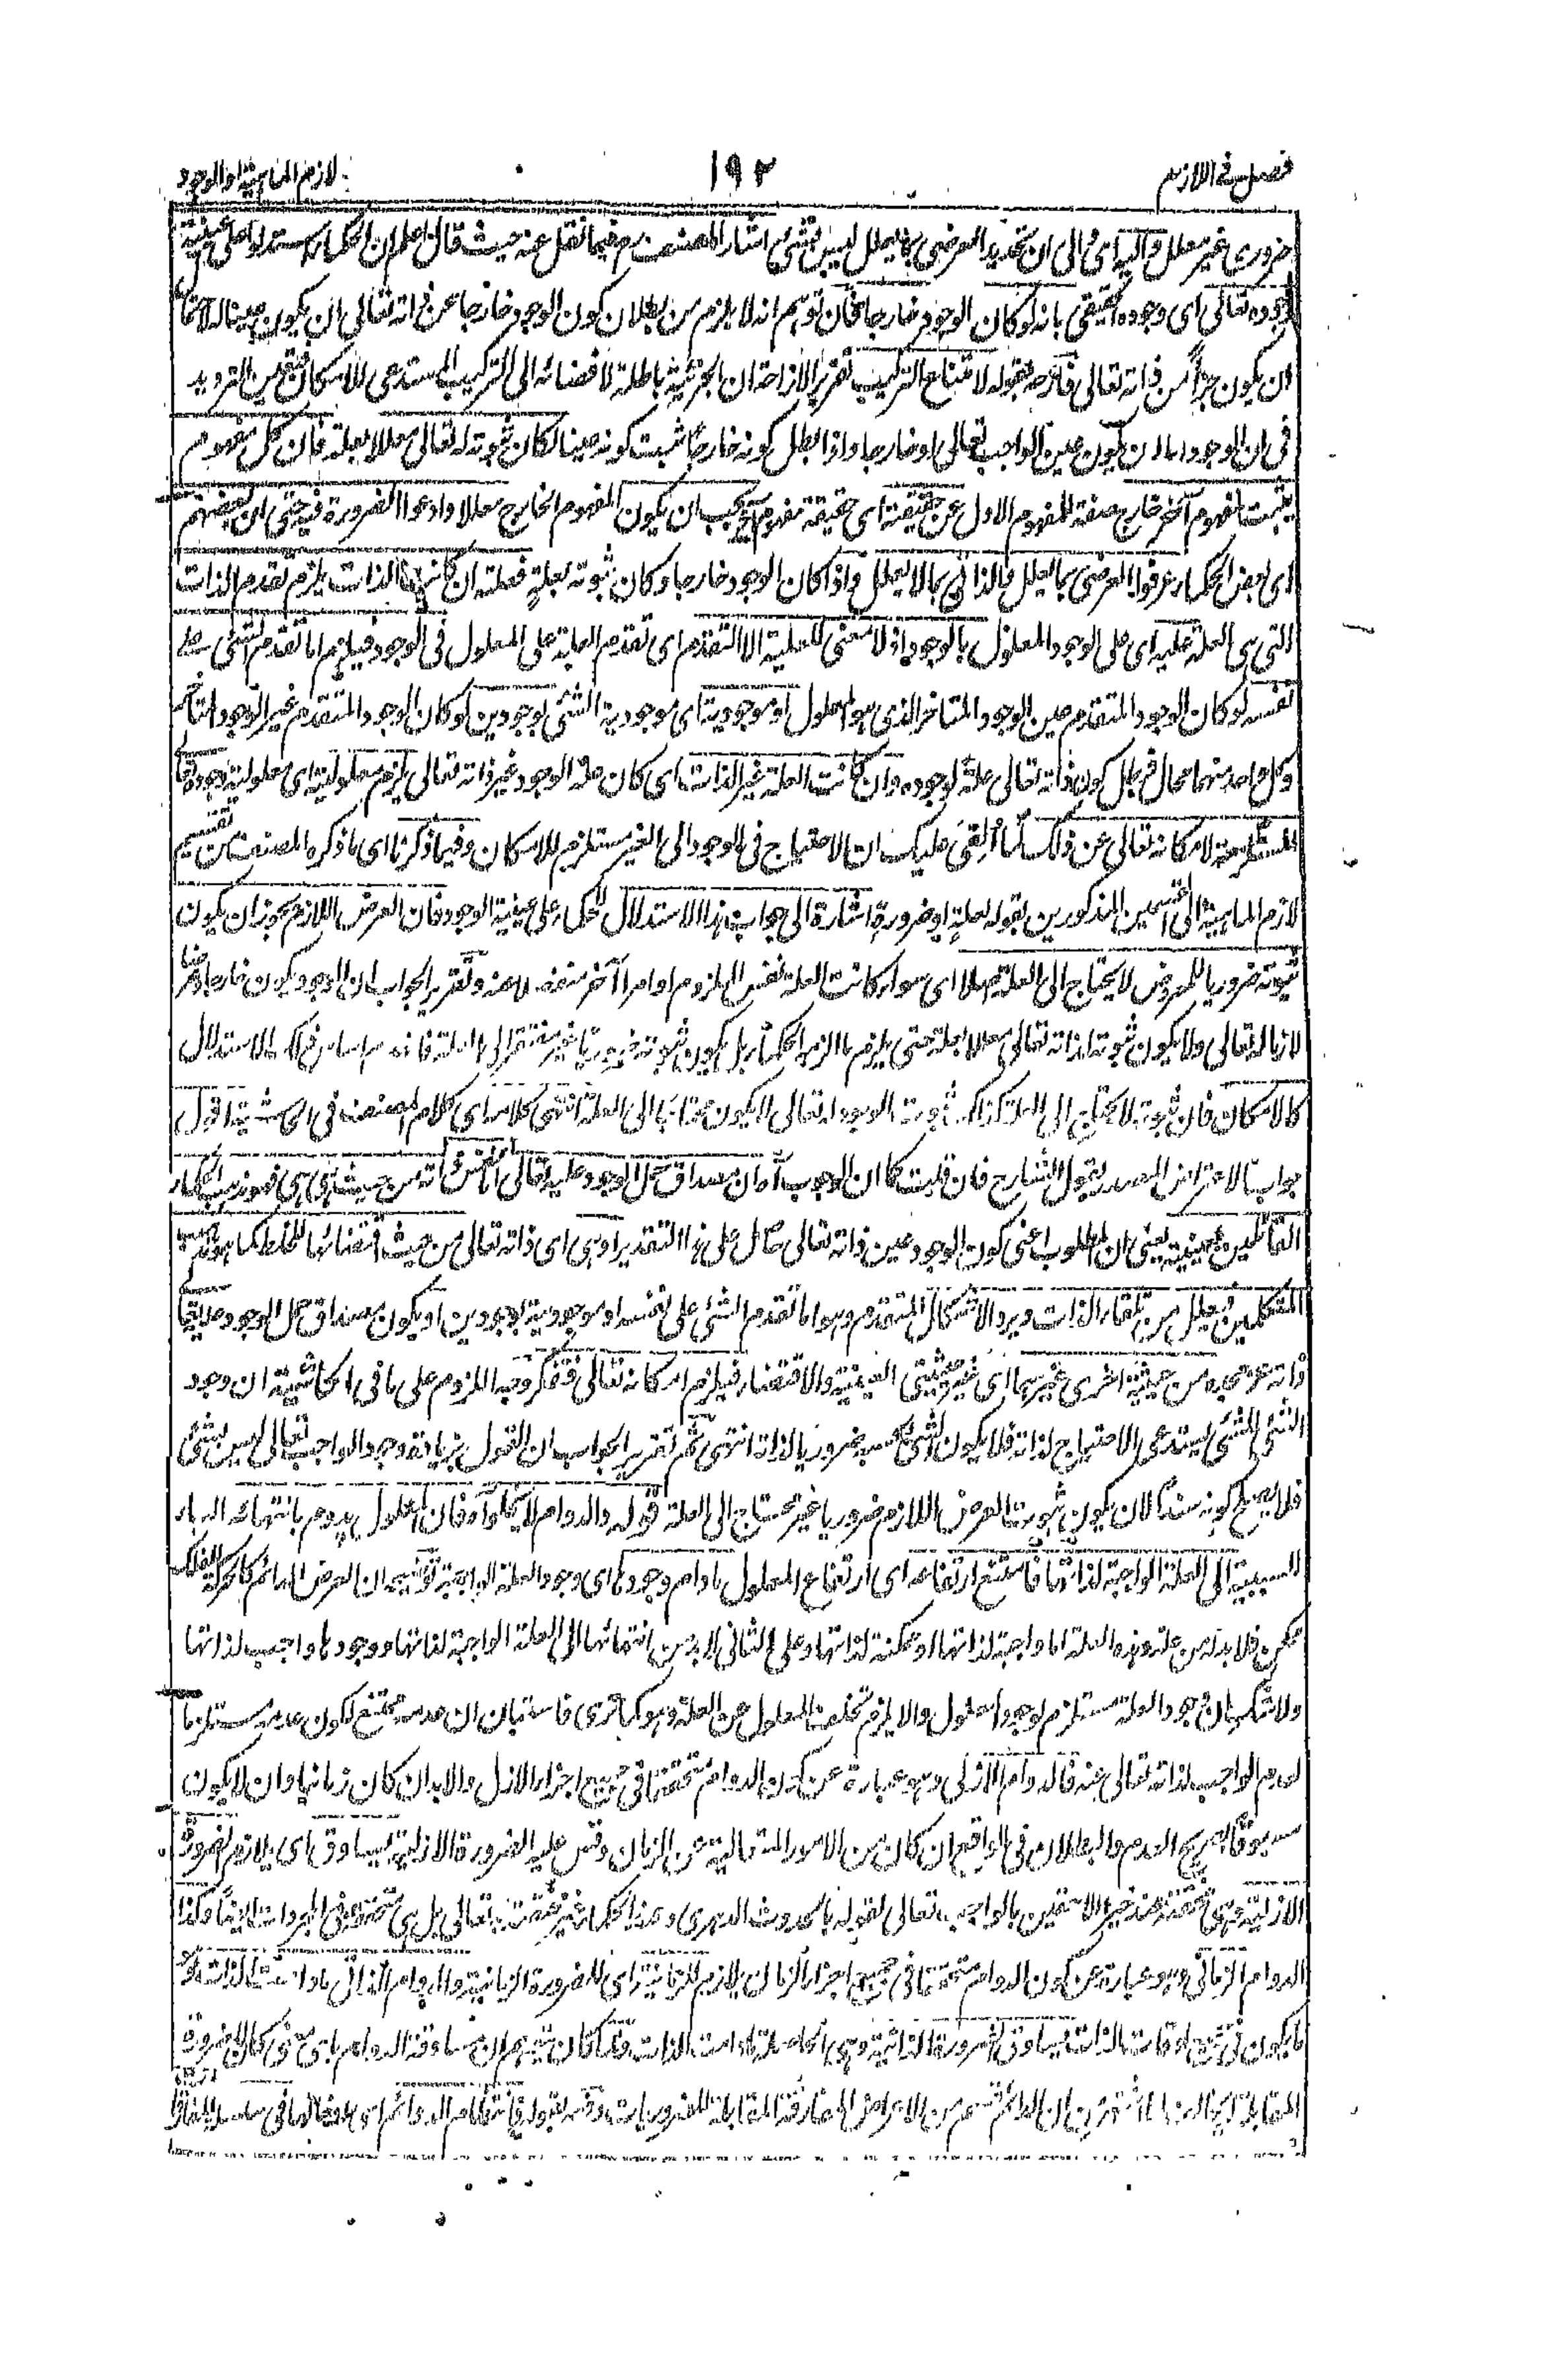 فصل في اللازم ١٩٢ لازم الماهية او الوجود
ضروري غير معلل واليه اي الى ان تحديد العرضي بما يعلل ليس بشيء اشار المصنف رح فيما نقل عنه حيث قال اعلم ان الحكماء استدلوا على عينية
وجوده تعالى اي وجوده الحقيقي بانه لو كان الوجود خارجا فان توهم انه لا يلزم من بطلان كون الوجود خارجا عن ذاته تعالى ان يكون عينا له لاحتمال
ان يكون جزأ من ذاته تعالى فازاحه بقوله لامتناع التركيب تقرير الازاحة ان الجزئية باطلة لافضائه الى التركيب المستدعي للامكان فتعين الترديد
في ان الوجود اما ان يكون عين الواجب تعالى او خارجا واذا بطل كونه خارجا ثبت كونه عينا لكان ثبوته له تعالى معللا بعلة فان كل مفهوم
يثبت لمفهوم آخر خارج صفة للمفهوم الاول عن حقيقته اي حقيقة مفهوم آخر يجب ان يكون المفهوم الخارج معللا وادعوا الضرورة فيه حتى ان بعضهم
اي بعض الحكماء عرفوا العرضي بما يعلل والذاتي بما لا يعلل واذا كان الوجود خارجا وكان ثبوته بعلة فعلته ان كانت الذات يلزم تقدم الذات
التي هي العلة عليه اي على الوجود المعلول بالوجود اذ لا معنى للعلية الا التقدم اي تقدم العلة على المعلول في الوجود فيلزم اما تقدم الشيء على
نفسه لو كان الوجود المتقدم عين الوجود المتاخر الذي هو المعلول او موجودية اي موجودية الشيء بوجودين لو كان الوجود المتقدم غير الوجود المتأخر
وكل واحد منهما محال فبطل كون ذاته تعالى علة لوجوده وان كانت العلة غير الذات اي كان علة الوجود غير ذاته تعالى يلزم معلوليته اي معلولية وجوده تعالى
المستلزمة لامكانه تعالى عن ذلك لما القى عليك ان الاحتياج في الوجود الى الغير مستلزم للامكان وفيما ذكرنا اي ما ذكره المصنف من تقسيم
لازم الماهية الى القسمين المذكورين بقوله لعلة او ضرورة اشارة الى جواب هذا الاستدلال للحكماء على عينية الوجود فان العرض اللازم يجوز ان يكون
ثبوته ضروريا للمعروض لا يحتاج الى العلة اصلا اي سواء كانت العلة نفس الملزوم او امرا آخر منفصلا عنه وتقرير الجواب ان الوجود يكون خارجا عرضا
لازما له تعالى ولا يكون ثبوته لذاته تعالى معللا بعلة حتى يلزم ما الزم الحكماء بل يكون ثبوته ضروريا غير مفتقر الى العلة فانهدم اساس ذلك الاستدلال
كالامكان فان ثبوته لا يحتاج الى العلة كذلك ثبوت الوجود له تعالى لا يكون محتاجا الى العلة انتهى كلامه اي كلام المصنف في الحاشية اقول
جواب الاعتراض المصدر بقول الشارح فان قلت كما ان الوجوب آه ان مصداق حمل الوجود عليه تعالى اما نفس ذاته من حيث هي هي فهو مذهب الحكماء
القائلين بعينية يعني ان المطلوب اعني كون الوجود عين ذاته تعالى حاصل على هذا التقدير او هي اي ذاته تعالى من حيث اقتضائها للخلط كما هو مذهب
المتكلمين فيعلل من تلقاء الذات ويرد الاشكال المتقدم وهو اما تقدم الشيء على نفسه او موجودية بوجودين او يكون مصداق حمل الوجود عليه تعالى
ذاته عز مجده من حيثية اخرى غيرهما اي غير حيثيتي العينية والاقتضاء فيلزم امكانه تعالى فتفكر وجه اللزوم على ما في الحاشية ان وجود
الشيء للشيء يستدعي الاحتياج لذاته فلا يكون الشيء ضروريا لذاته انتهى ثم تقرير الجواب ان القول بزيادة وجود الواجب تعالى ليس بشيء
فلا يصح كونه سندا لان يكون ثبوت العرض اللازم ضروريا غير محتاج الى العلة قوله والدوام لا يخلو آه فان المعلول يدوم بانتهائه البار
السببية الى العلة الواجبة لذاتها فامتنع ارتفاعه اي ارتفاع المعلول ما دام وجودها اي وجود العلة الواجبة توضيحه ان العرض الدائم كالحركة للفلك
ممكن فلا بد له من علة وهذه العلة اما واجبة لذاتها او ممكنة لذاتها وعلى الثاني لا بد من انتهائها الى العلة الواجبة لذاتها ووجودها واجب لذاتها
ولا شك ان وجود العلة مستلزم لوجود المعلول والا يلزم تخلف المعلول عن العلة وهو كما ترى فاستبان ان عدمه ممتنع لكون عدمه مستلزما
لعدم الواجب لذاته تعالى عنه فالدوام الازلي وهو عبارة عن كون الدوام متحققا في جميع اجزاء الازل والابد ان كان زمانيا وان لا يكون
مسبوقا بصريح العدم والبطلان في الواقع ان كان من الامور المتعالية عن الزمان وقس عليه الضرورة الازلية يساوق اي يلازم لضرورة
الازلية فهي مختصة عند خير اللاحقين بالواجب تعالى لقوله بالحدوث الدهري وعند الحكماء غير مختصة به تعالى بل هي متحققة في المجردات ايضا وكذا
الدوام الزماني وهو عبارة عن كون الدوام متحققا في جميع اجزاء الزمان يلازم للزمانية اي للضرورة الزمانية والدوام الذاتي ما دامت الذات وهو
ما يكون في جميع اوقات الذات يساوق الضرورة الذاتية وهي الحاصلة ما دامت الذات ولما كان يتوهم ان مساوقة الدوام باي معنى كان للضرورة
المقابلة لهذا المعنى ان الدائم قسم من الاعراض المفارقة المقابلة للضروريات دفعه بقوله فانتظام الدوائم اي دخولها في سلسلة المفارق